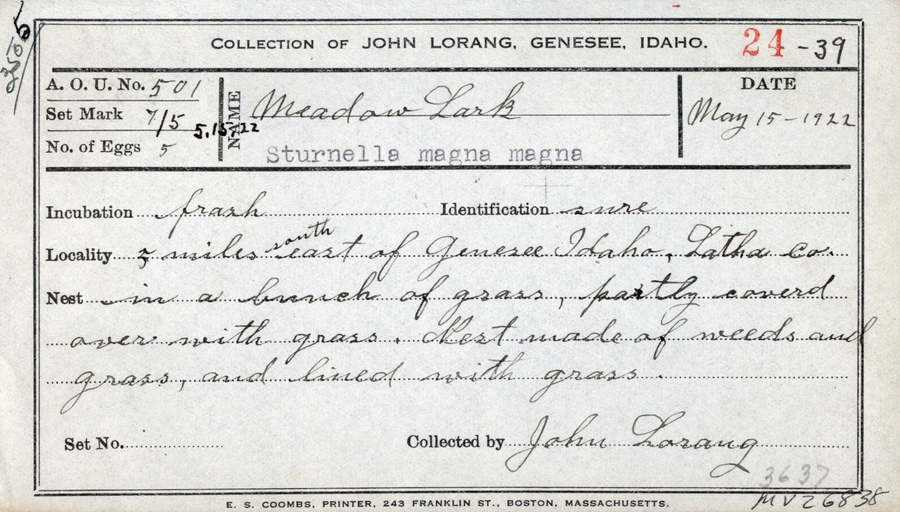 COLLECTION OF JOHN LORANG, GENESEE, IDAHO. 24 - 39
A. O. U. No. 501
Set Mark 7/5 5.15.22
No. of Eggs 5
NAME Meadow Lark
Sturnella magna magna
DATE
May 15-1922
Incubation frash Identification sure
Locality miles south east of Genesee Idaho. Latha co.
Nest in a bunch of grass, partly coverd
over with grass. Nest made of weeds and
grass, and lined with grass.
Set No. Collected by John Lorang
3637
E. S. COOMBS, PRINTER, 243 FRANKLIN ST., BOSTON, MASSACHUSETTS.
MVZ6838